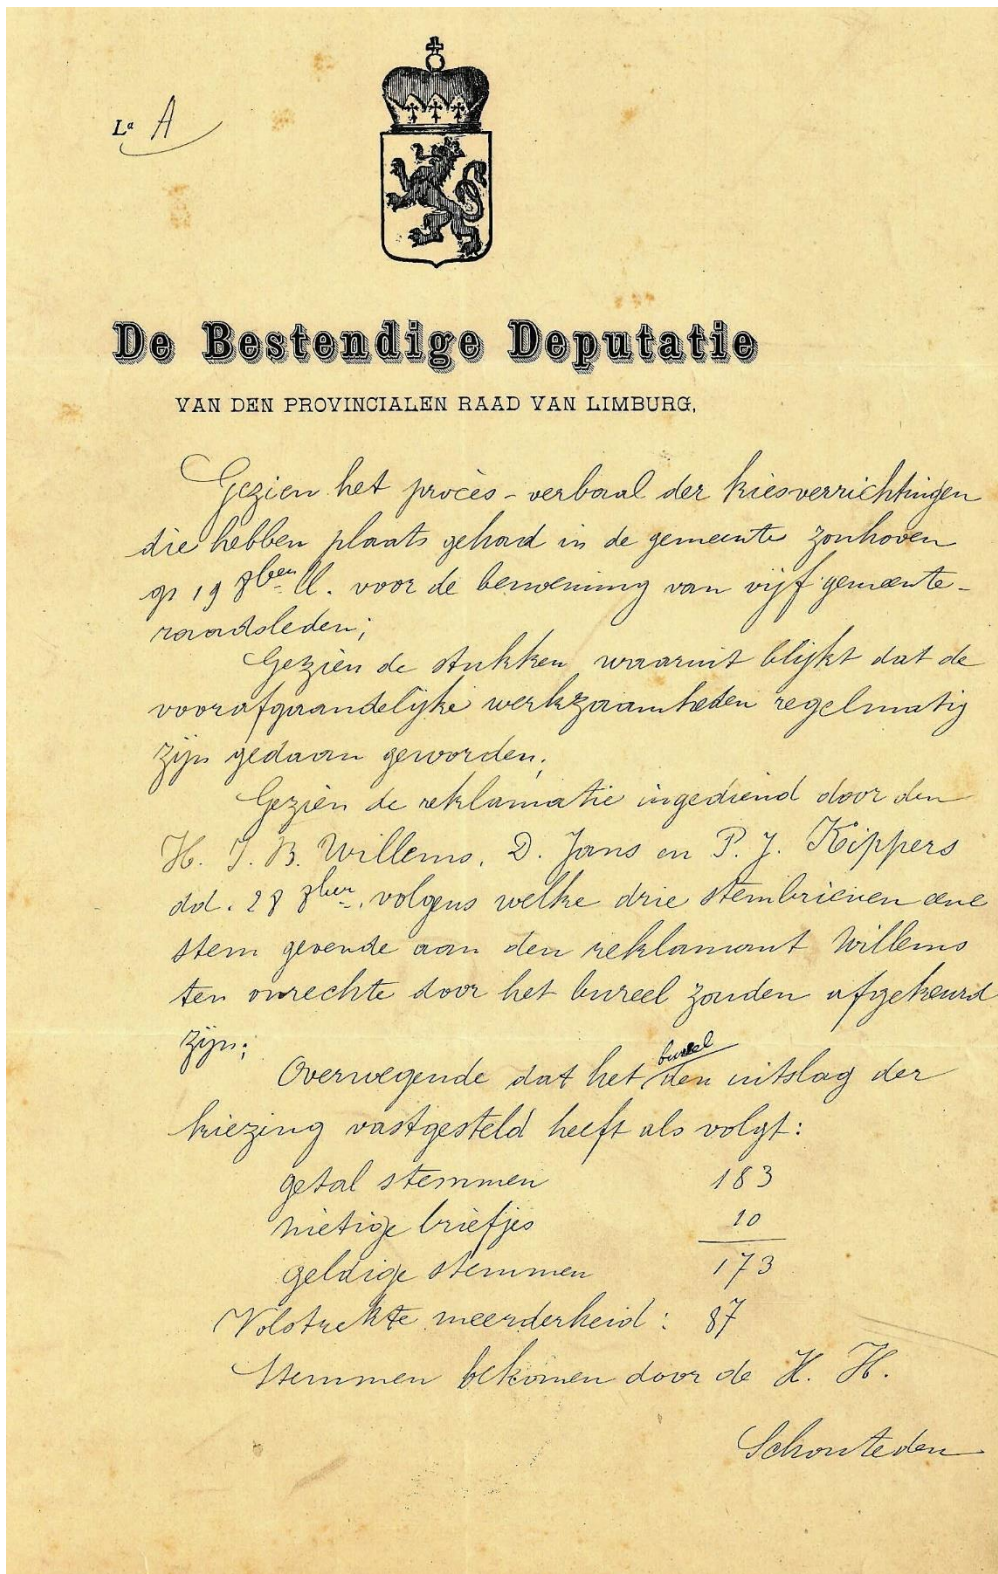 La A
De Bestendige Deputatie
VAN DEN PROVINCIALEN RAAD VAN LIMBURG.
Gezien het procès-verbaal der kiesverrichtingen
die hebben plaats gehad in de gemeente Zonhoven
op 19 8ber ll. voor de benoeming van vijf gemeente-
raadsleden;
Gezien de stukken waaruit blijkt dat de
voorafgaandelijke werkzaamheden regelmatig
zijn gedaan geworden;
Gezien de reklamatie ingediend door den
H. J. B. Willems, D. Jans en P. J. Keippers
dd. 28 8ber, volgens welke drie stembrieven eene
stem gevende aan den reklamant Willems
ten onrechte door het bureel zouden afgekeurd
zijn;
Overwegende dat het bureel den uitslag der
kiezing vastgesteld heeft als volgt:
getal stemmen 183
nietige briefjes 10
geldige stemmen 173
Volstrekte meerderheid: 87
Stemmen bekomen door de H. H.
Schouteden